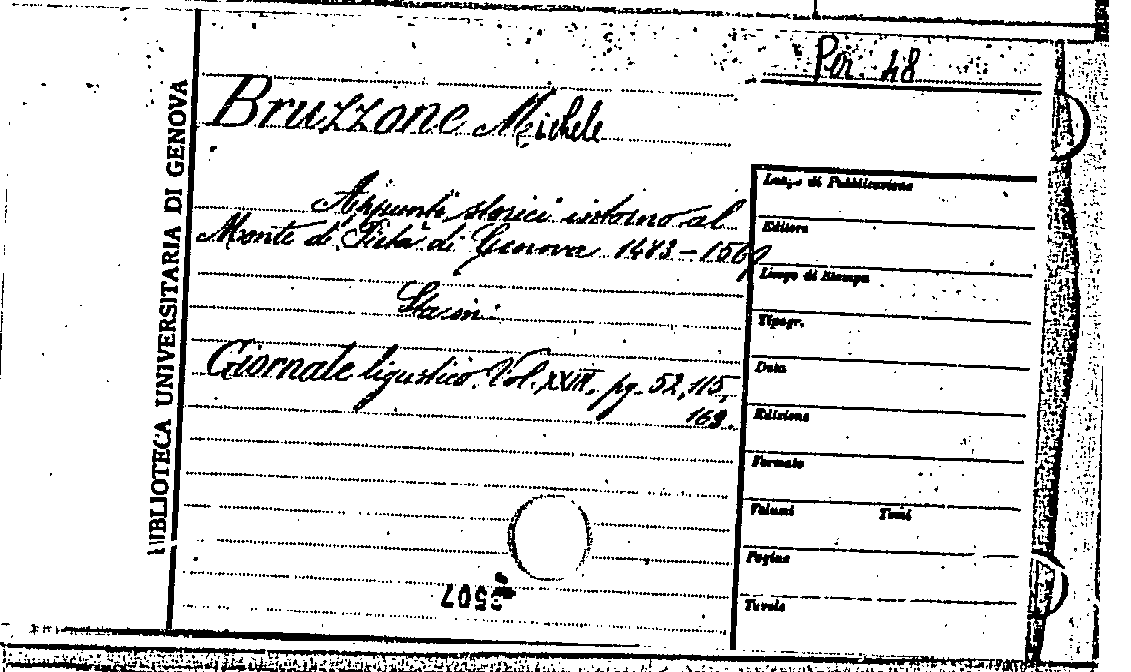 Per 48
BIBLIOTECA UNIVERSITARIA DI GENOVA
Bruzzone Michele
Appunti storici intorno al
Monte di Pietà di Genova 1483-1569
Giornale ligustico. Vol. XXIII. pg. 52, 115,
169.
Luogo di Pubblicazione
Editore
Luogo di Stampa
Tipogr.
Data
Edizione
Formato
Volumi Tomi
Pagine
Tavole